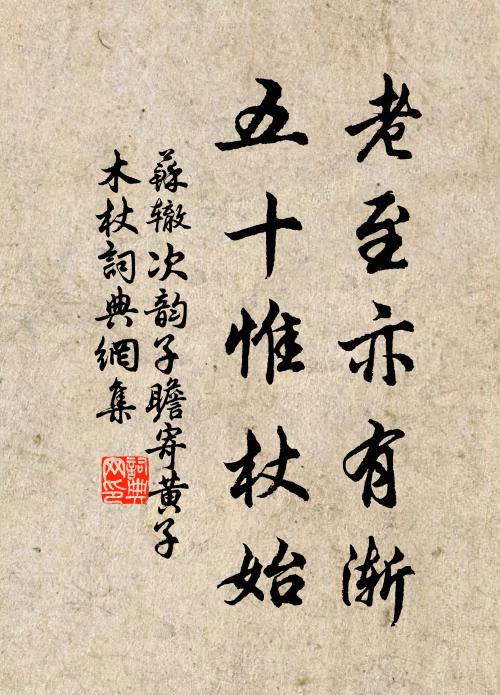 老至亦有漸
五十惟杖始
蘇辙次韵子瞻寄黄子
木杖詞典網集
詞典
网印